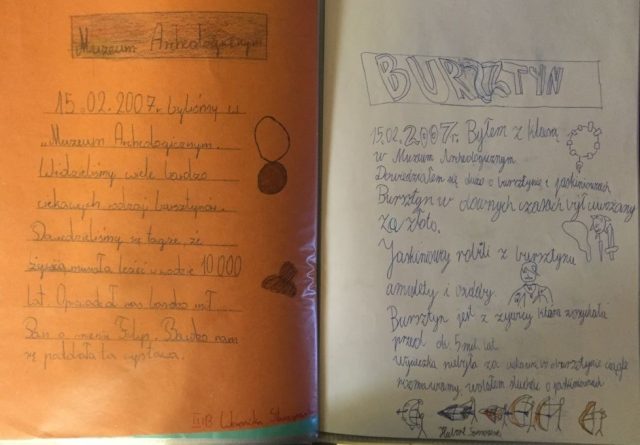 Muzeum Archeologicznym
15.02.2007r. byliśmy w
„Muzeum Archeologicznym.
Widzieliśmy wiele bardzo
ciekawych rodzaji bursztynów.
Dowiedzieliśmy się że
żywica musiała leżeć w wodzie 10 000
lat. Opowiadał nas bardzo mił
Pan o imieniu Filip. Bardzo nam
się poddała ta wystawa.
III B Weronika
BURSZTYN
15.02.2007r. Byłem z klasą
w Muzeum Archeologicznym
Dowiedziałem się dużo o bursztynie i jaskiniowcach
Bursztyn w dawnych czasach był uważany
za złoto.
Jaskiniowcy robili z bursztynu
amulety i ozdoby.
Bursztyn jest z żywicy która
przed ok. 5 mil lat
Wycieczka niebyła za o bursztynie ciągle
wolałem słuchać o jaskiniowcach